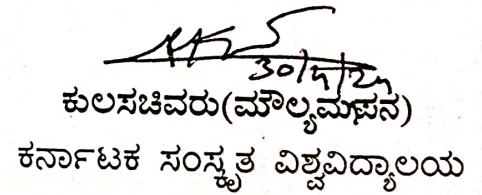 ಕುಲಸಚಿವರು(ಮೌಲ್ಯಮಾಪನ)
ಕರ್ನಾಟಕ ಸಂಸ್ಕೃತ ವಿಶ್ವವಿದ್ಯಾಲಯ